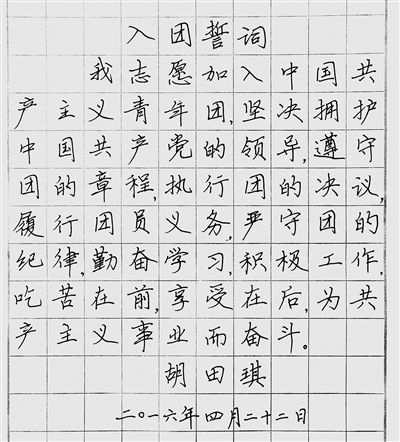 入团誓词
我志愿加入中国共
产主义青年团,坚决拥护
中国共产党的领导,遵守
团的章程,执行团的决议,
履行团员义务,严守团的
纪律,勤奋学习,积极工作,
吃苦在前,享受在后,为共
产主义事业而奋斗。
胡田琪
二〇一六年四月二十二日